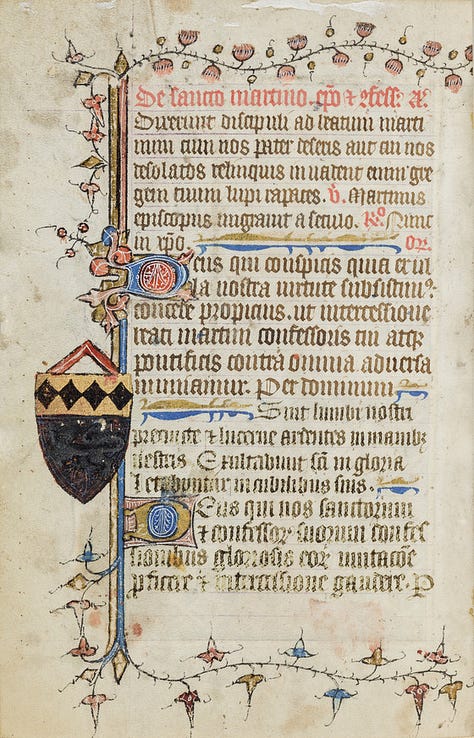 De sancto martino. epo & cfess: A.
Dixerunt discipuli ad beatum marti
num cur nos pater deseris aut cui nos
desolatos relinquis invadent enim gre
gem tuum lupi rapaces. V. Martinus
episcopus migravit a seculo. R.
in xpo. Or.
Deus qui conspicis quia ex ul
la nostra virtute subsistim9:
concede propicius. ut intercessione
beati martini confessoris tui atq3
pontificis contra omnia adversa
muniamur. Per dominum
Sint lumbi vestri
precincte & lucerne ardentes in manib3
vestris. Exultabunt sci in gloria
Letabuntur in cubilibus suis.
Deus qui nos sanctorum
& confessor suorum confes
sionibus gloriosis eor imitacoe
pficere & intercessione gaudere. P